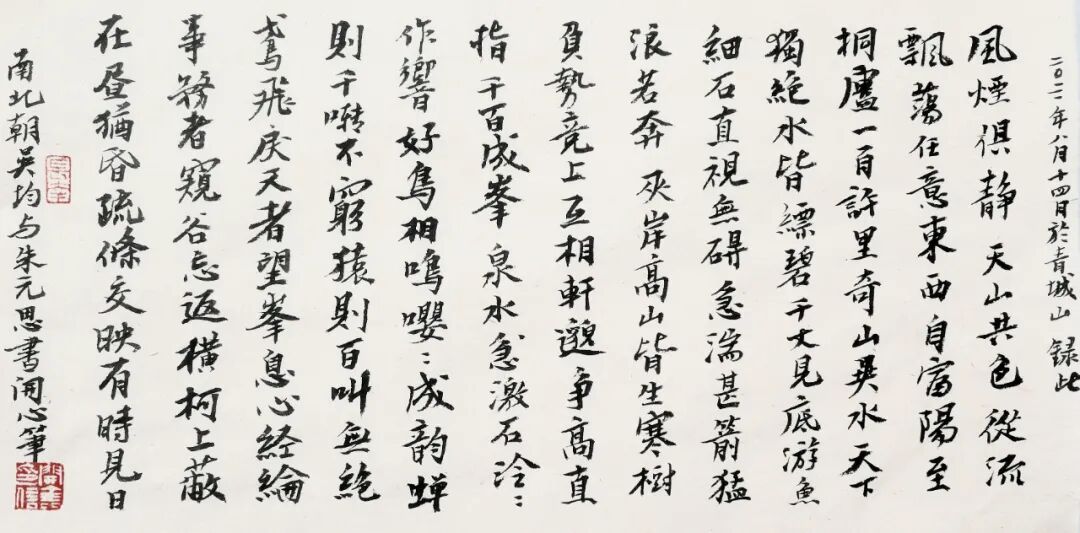 二〇二二年八月十四日於青城山 録此
風煙俱静天山共色從流
飄蕩任意東西自富陽至
桐廬一百許里奇山異水天下
獨絶水皆縹碧千丈見底游魚
細石直視無碍急湍甚箭猛
浪若奔夾岸高山皆生寒樹
負勢竞上互相軒邈争高直
指千百成峯泉水急激石泠〻
作響好鳥相鳴嚶〻成韵蝉
則千囀不窮猿則百叫無絶
鳶飛戾天者望峯息心経綸
事務者窺谷忘返横柯上蔽
在昼猶昏疏條交映有時見日
南北朝吴均与朱元思書開心筆